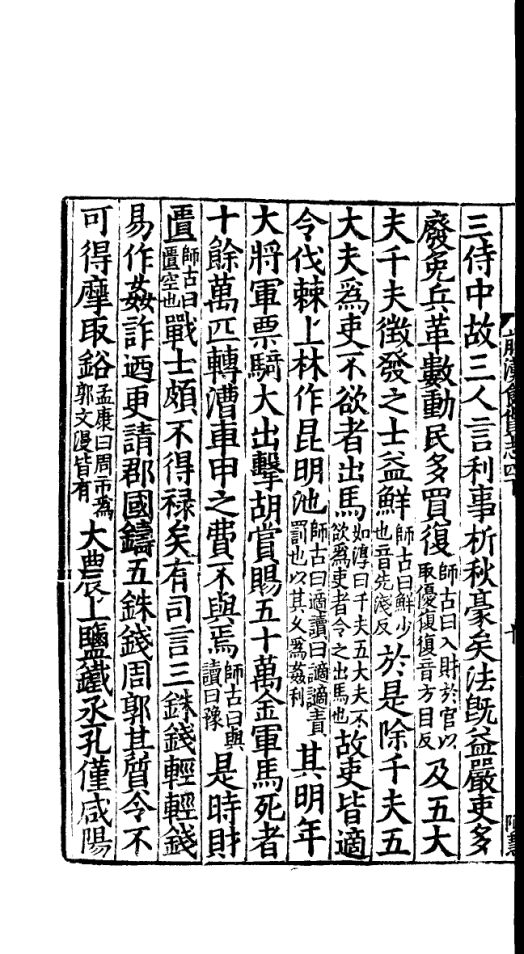 三侍中故三人言利事析秋豪矣法既益嚴吏多
廢免兵革數動民多買復師古曰入財於官以取優復復音方目反及五大
夫千夫徵發之士益鮮師古曰鮮少也音先淺反於是除千夫五
大夫爲吏不欲者出馬如淳曰千夫五大夫不欲爲吏者令之出馬也故吏皆適
令伐棘上林作昆明池師古曰適讀曰讁讁責罰也以其久爲姦利其明年
大將軍票騎大出擊胡賞賜五十萬金軍馬死者
十餘萬匹轉漕車甲之費不與焉師古曰與讀曰豫是時財
匱師古曰匱空也戰士頗不得祿矣有司言三銖錢輕輕錢
易作姦詐迺更請郡國鑄五銖錢周郭其質令不
可得摩取鋊孟康曰周帀爲郭文漫皆有大農上鹽鐵丞孔僅咸陽